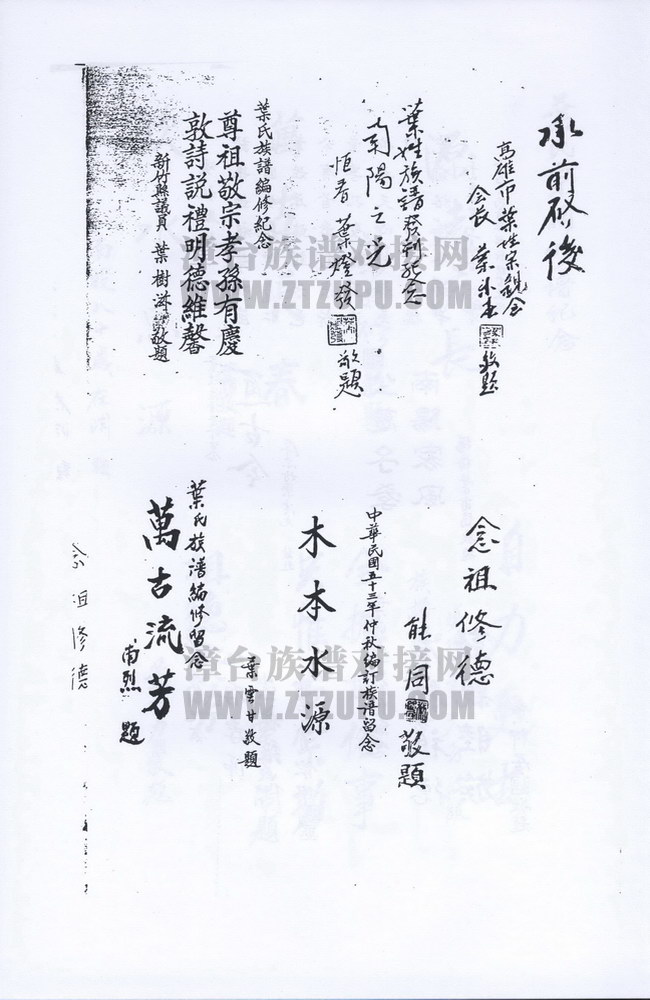 承前啓後
高雄市葉姓宗親會
會長 葉
敬題
葉姓族譜發刊紀念
南陽之光
恒春 葉燈發
敬題
葉氏族譜編修紀念
尊祖敬宗孝孫有慶
敦詩説禮明德維馨
新竹縣議員 葉樹
敬題
念祖修德
能同
敬題
中華民國五十三年仲秋編訂族譜留念
木本水源
葉雲甘敬題
葉氏族譜編修留念
萬古流芳
南烈題
念祖修德
漳台族谱对接网
WWW.ZTZUPU.COM
漳台族谱对接网
WWW.ZTZUPU.COM